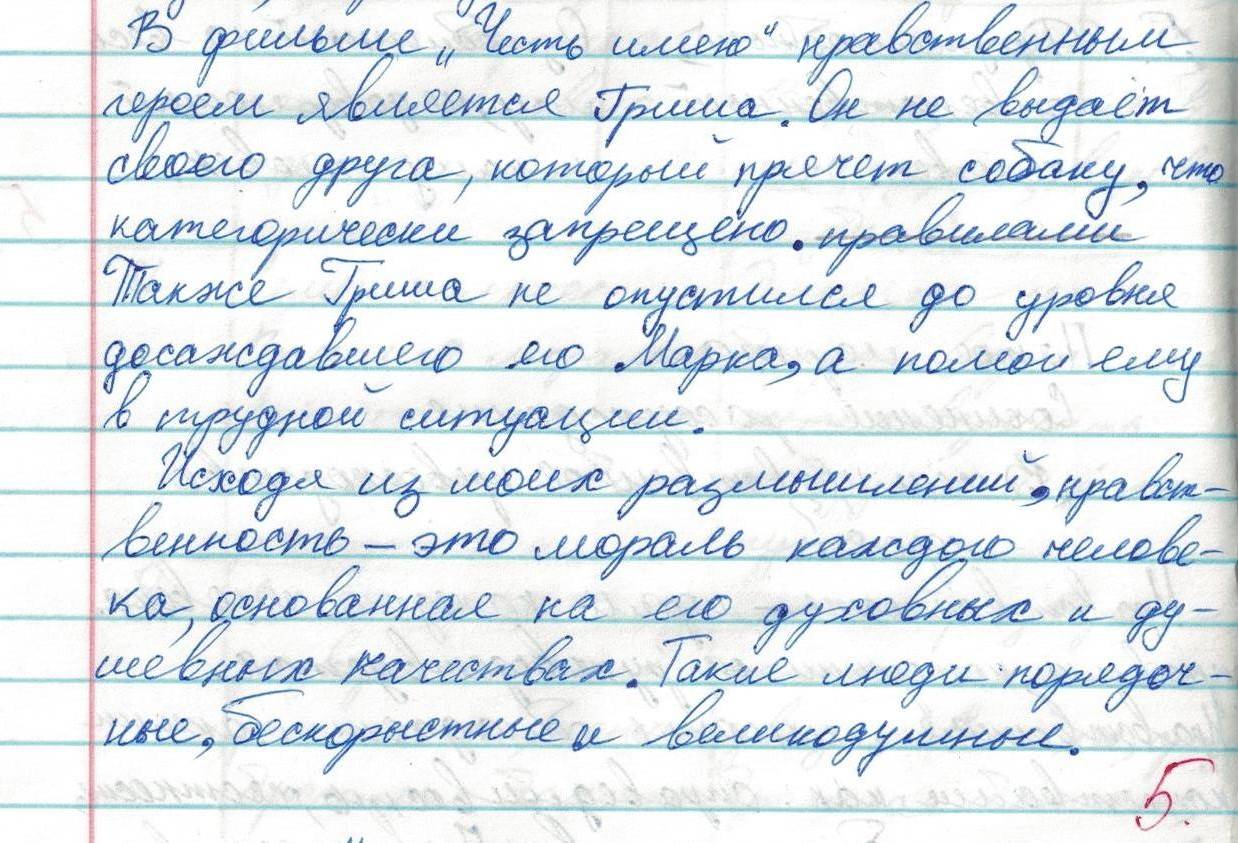 В фильме „Честь имею“ нравственным
героем является Гриша. Он не выдаёт
своего друга, который прячет собаку, что
категорически запрещено. правилами
Также Гриша не опустился до уровня
досаждавшего его Марка, а помог ему
в трудной ситуации.
Исходя из моих размышлений, нравст-
венность – это мораль каждого челове-
ка, основанная на его духовных и ду-
шевных качествах. Такие люди порядоч-
ные, бескорыстные и великодушные.
5.